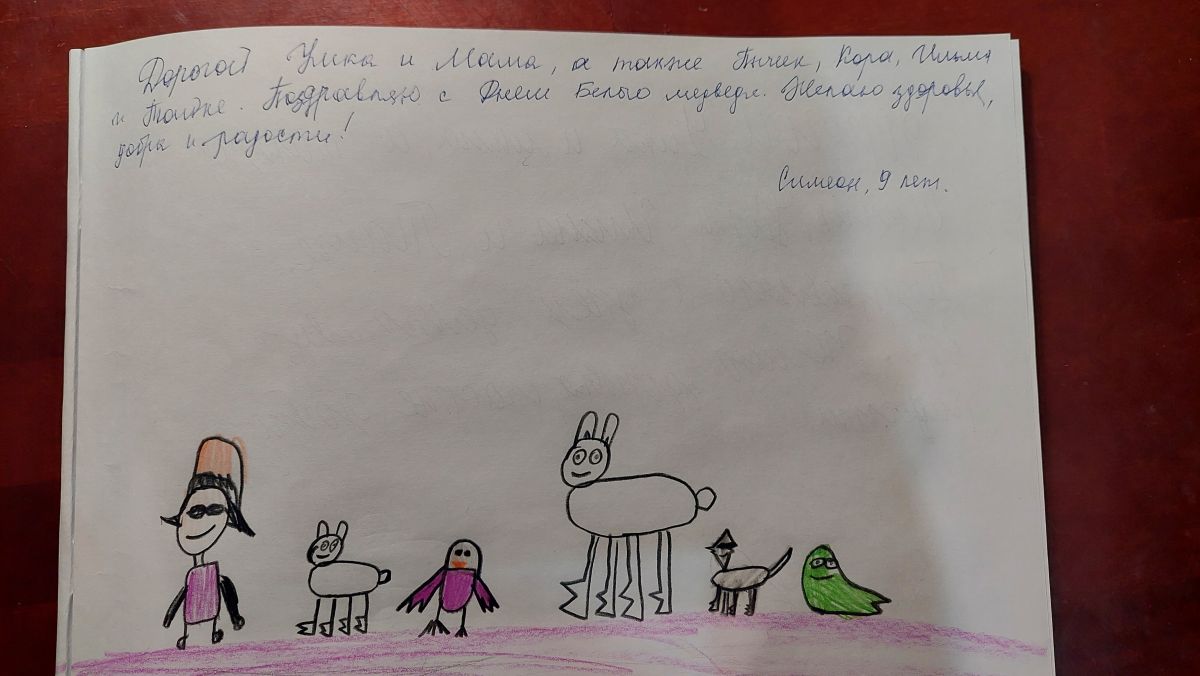 Дорогой Умка и Мама, а также Пнчик, Кора, Ильма
и Поздравляю с Днем Белого медведя. Желаю здоровья,
добра и радости!
Симеон, 9 лет.